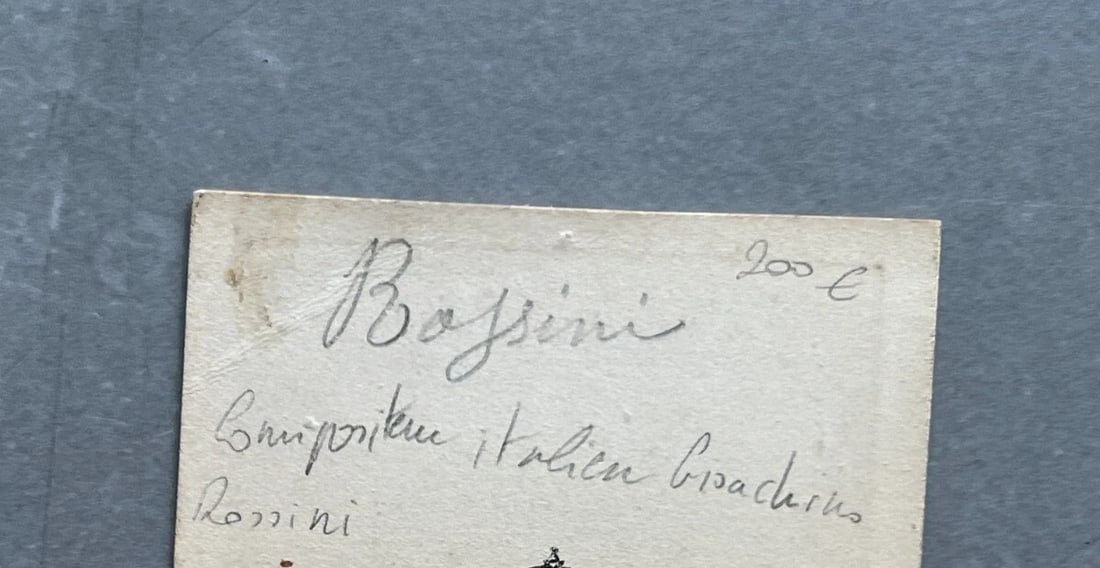 Rossini
200 €
Compositeur italien Gioachino
Rossini